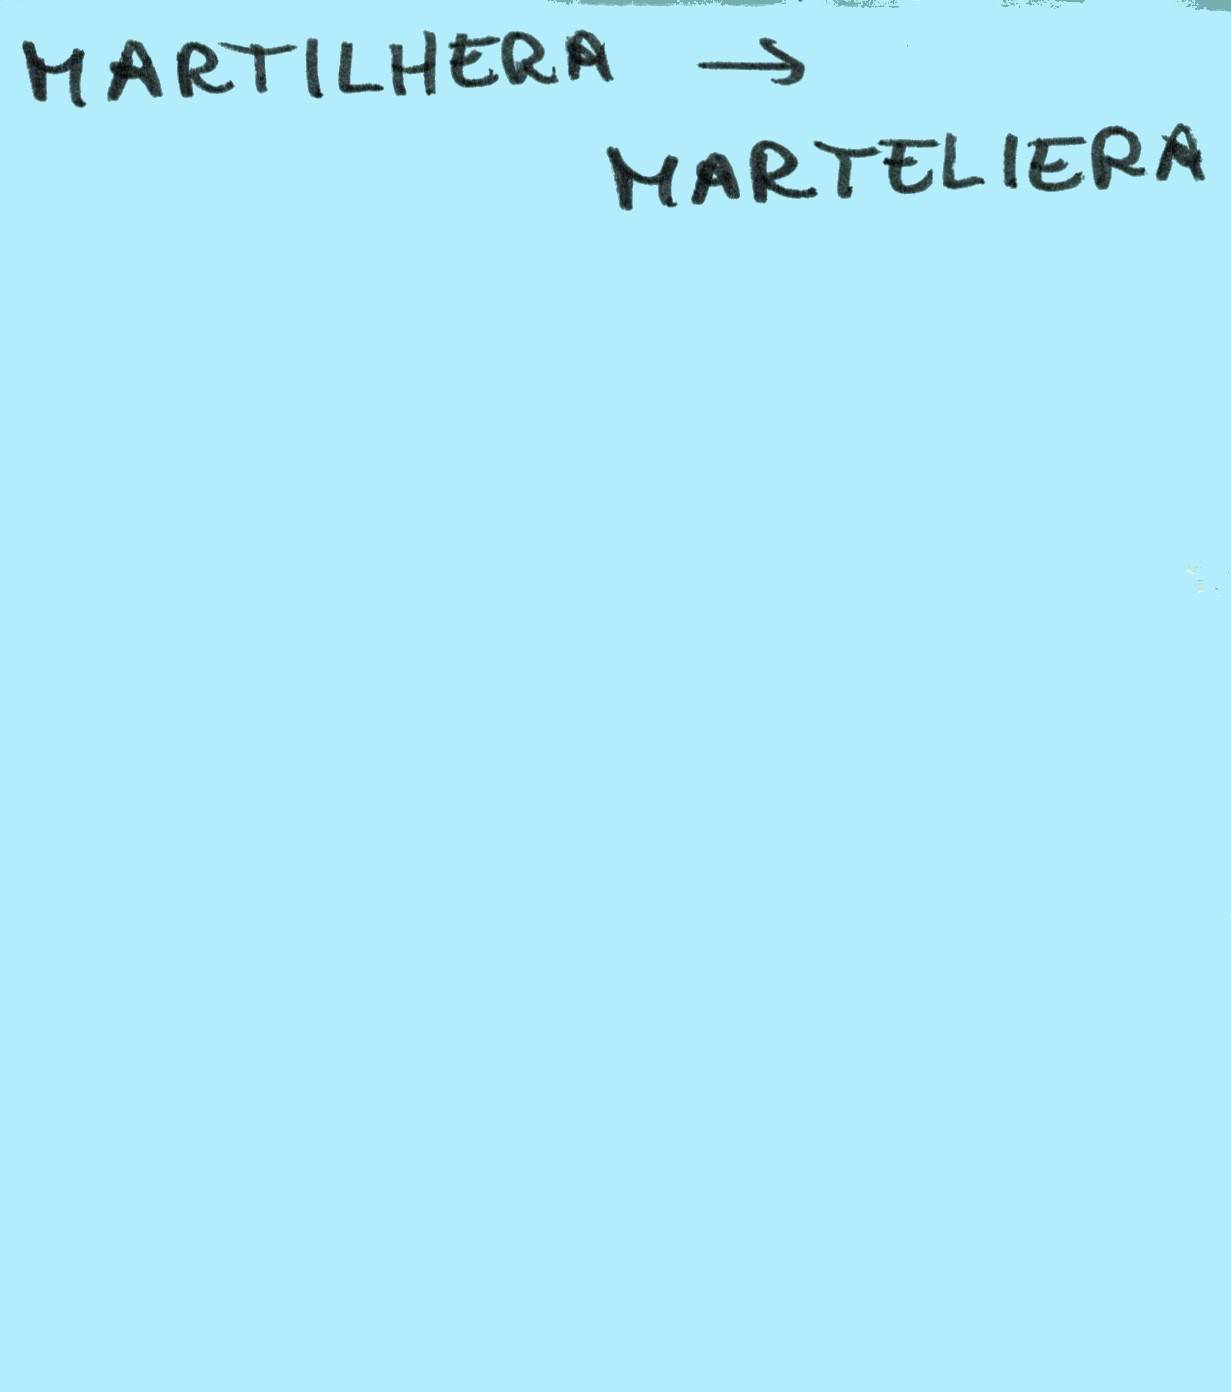 MARTILHERA →
MARTELIERA